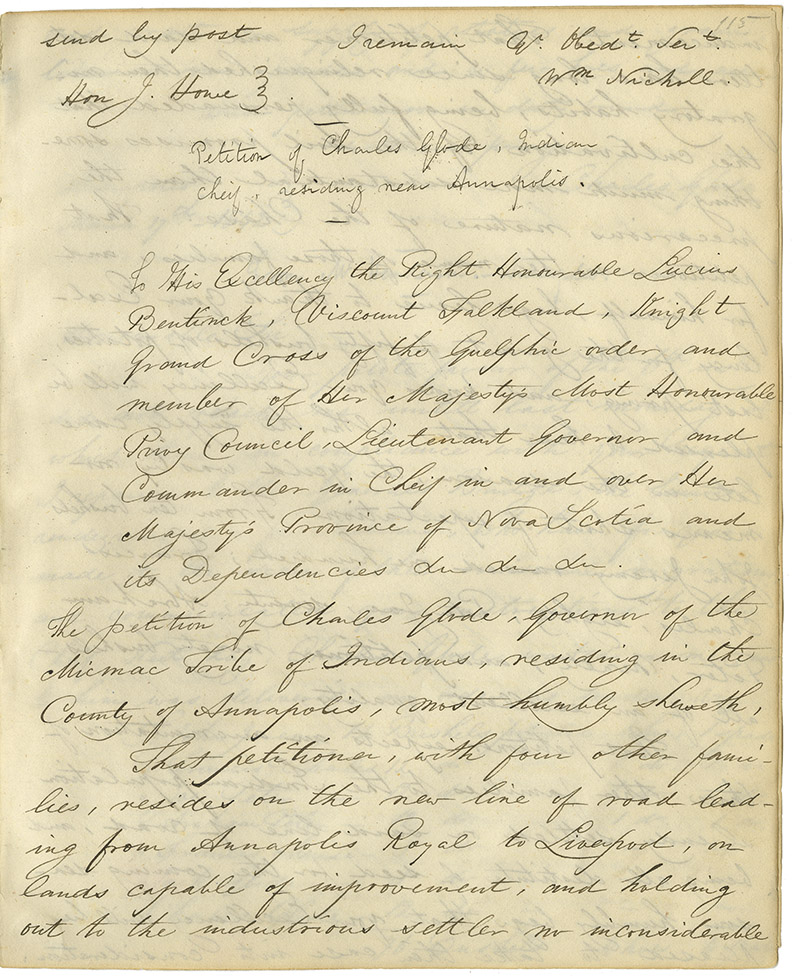 115
send by post I remain Yr. Obedt. Sert.
Wm Nicholl.
Hon J. Howe }.
Petition of Charles Glode, Indian
Cheif, residing near Annapolis.
To His Excellency the Right Honourable Lucius
Bentinck, Viscount Falkland, Knight
Grand Cross of the Guelphic order and
member of Her Majesty's Most Honourable
Privy Council, Lieutenant Governor and
Commander in Cheif in and over Her
Majesty's Province of Nova Scotia and
its Dependencies &c &c &c.
The petition of Charles Glode, Governor of the
Micmac Tribe of Indians, residing in the
County of Annapolis, most humbly sheweth,
That petitioner, with four other fami-
lies, resides on the new line of road lead-
ing from Annapolis Royal to Liverpool, on
lands capable of improvement, and holding
out to the industrious settler no inconsiderable